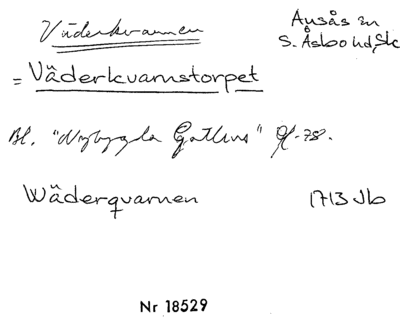 Väderkvarnen
Ausås sn
S. Åsbo hd, Sk
= Väderkvarnstorpet
Bl. "Nybygda Gathus"
Wäderqvarnen 1713 Jb
Nr 18529